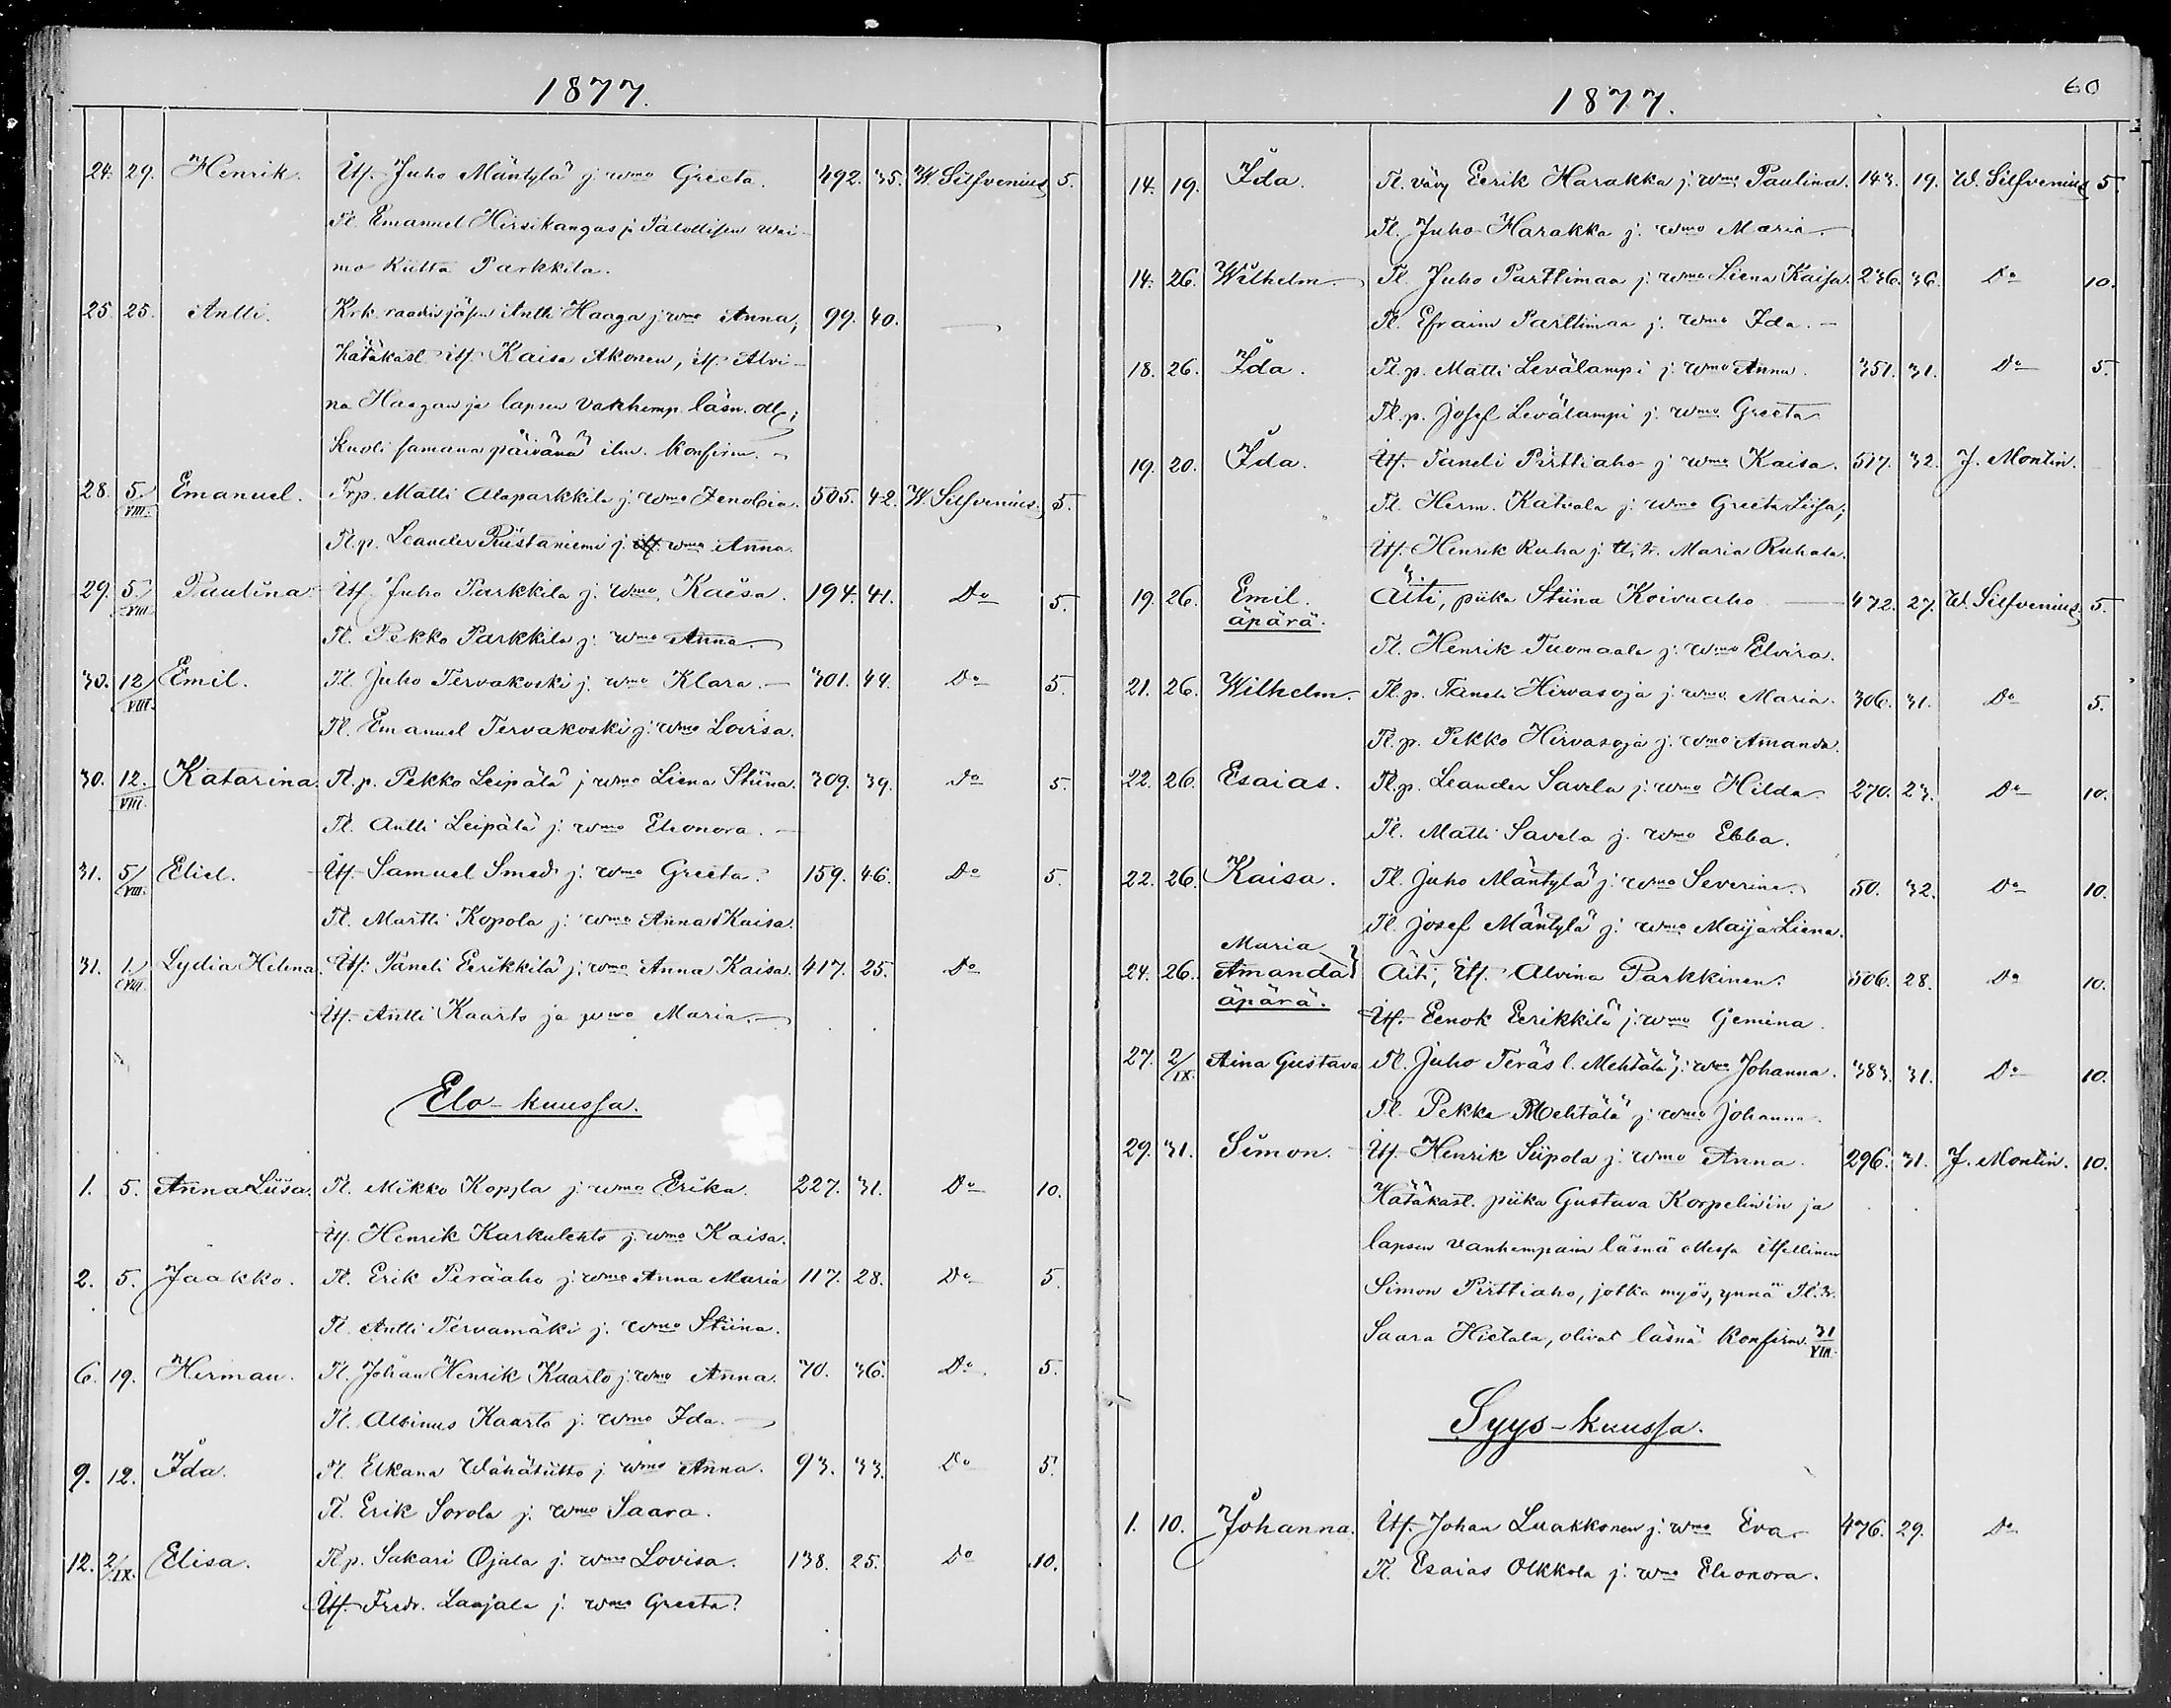 1877.
24. 29. Henrik. Itf. Juho Mäntylä j. wmo Greeta. 492. 35. W. Silfvenius 5.
Tl. Emanuel Hirsikangas j. Talollisen wai-
mo Kiitta Parkkila.
25. 25. Antti. Krk. raadin jäsen Antti Haaga j. wmo Anna, 99. 40. —
hätäkast. itf. Kaisa Akonen, itf. Alvi-
na Haagan ja lapsen vanhemp. läsn. oll.;
kuoli samana päivänä ilm. konfirm. –
28. 5./VIII. Emanuel. Trp. Matti Alaparkkila j. wmo Zenobia. 505. 42. W. Silfvenius. 5.
Tl.p. Leander Riistaniemi j. wmo Anna.
29. 5./VIII. Paulina Itf. Juho Parkkila j. wmo Kaisa. 194. 41. Do 5.
Tl. Pekko Parkkila j. wmo Anna.
30. 12/VIII. Emil. Tl. Juho Tervakoski j. wmo Klara. — 301. 44. Do 5.
Tl. Emanuel Tervakoski j. wmo Lovisa.
30. 12./VIII. Katarina. Tl.p. Pekko Leipälä j. wmo Liena Stiina. 309. 39. Do 5.
Tl. Antti Leipälä j. wmo Eleonora. —
31. 5/VIII. Eliel. Itf. Samuel Smed j. wmo Greeta. 159. 46. Do 5.
Tl. Martti Kopola j. wmo Anna Kaisa.
31. 1./VIII. Lydia Helena. Itf. Taneli Eerikkilä j. wmo Anna Kaisa. 417. 25. Do
Itf. Antti Kaarto ja wmo Maria. —
Elo-kuussa.
1. 5. Anna Liisa. Tl. Mikko Kopsla j. wmo Erika. 227. 31. Do 10.
Itf. Henrik Karkulehto j. wmo Kaisa.
2. 5. Jaakko. Tl. Erik Peräaho j. wmo Anna Maria 117. 28. Do 5.
Tl. Antti Tervamäki j. wmo Stiina.
6. 19. Herman. Tl. Johan Henrik Kaarto j. wmo Anna. 70. 36. Do. 5.
Tl. Albinus Kaarto j. wmo Ida. —
9. 12. Ida. Tl. Elkana Wähätiitto j. wmo Anna. 93. 33. Do 5.
Tl. Erik Sorola j. wmo Saara.
12. 2/IX. Elisa. Tl.p. Sakari Ojala j. wmo Lovisa. 138. 25. Do 10.
Itf. Fredr. Laajala j. wmo Greeta.
60
1877.
14. 19. Ida. Tl. vävy Eerik Harakka j. wmo Paulina. 143. 19. W. Silfvenius 5.
Tl. Juho Harakka j. wmo Maria. —
14. 26. Wilhelm. — Tl. Juho Parttimaa j. wmo Liena Kaisa. 236. 36. Do 10.
Tl. Efraim Parttimaa j. wmo Ida. —
18. 26. Ida. Tl.p. Matti Levälampi j. wmo Anna. 351. 31. Do 5.
Tl.p. Josef Levälampi j. wmo Greeta
19. 20. Ida. Itf. Taneli Pirttiaho j. wmo Kaisa. 517. 32. J. Montin.
Tl. Herm. Katvala j. wmo Greeta Liisa;
Itf. Henrik Ruha j. tl. tr. Maria Ruhala.
19. 26. Emil. Äiti, piika Stiina Koivuaho — 472. 27. W. Silfvenius 5.
äpärä.
Tl. Henrik Tuomaala j. wmo Elvira.
21. 26. Wilhelm. Tl.p. Taneli Hirvasoja j. wmo Maria. 306. 31. Do 5.
Tl.p. Pekko Hirvasoja j. wmo Amanda.
22. 26. Esaias. Tl.p. Leander Savela j. wmo Hilda. 270. 23. Do 10.
Tl. Matti Savela j. wmo Ebba.
22. 26. Kaisa. Tl. Juho Mäntylä j. wmo Severina. 50. 32. Do 10.
Tl. Josef Mäntylä j. wmo Maija Liena.
Maria
24. 26. Amanda} Äiti, Itf. Alvina Parkkinen. 506. 28. Do 10.
äpärä.
Itf. Eenok Eerikkilä j. wmo Gemina.
27. 2/IX. Aina Gustava Tl. Juho Teräs l. Mehtälä j. wmo Johanna. 383. 31. Do 10.
Tl. Pekka Mehtälä j. wmo Johanna.
29. 31. Simon. Itf. Henrik Siipola j. wmo Anna. 296. 31. J. Montin. 10.
Hätäkast. piika Gustava Korpelin'in ja
lapsen vanhempain läsnä ollessa itsellinen
Simon Pirttiaho, jotka myös, ynnä Tl. tr.
Saara Hietala, olivat läsnä konfirm. 31/VIII.
Syys-kuussa.
1. 10. Johanna. Itf. Johan Luakkonen j. wmo Eva. 476. 29. Do
Tl. Esaias Olkkola j. wmo Eleonora.